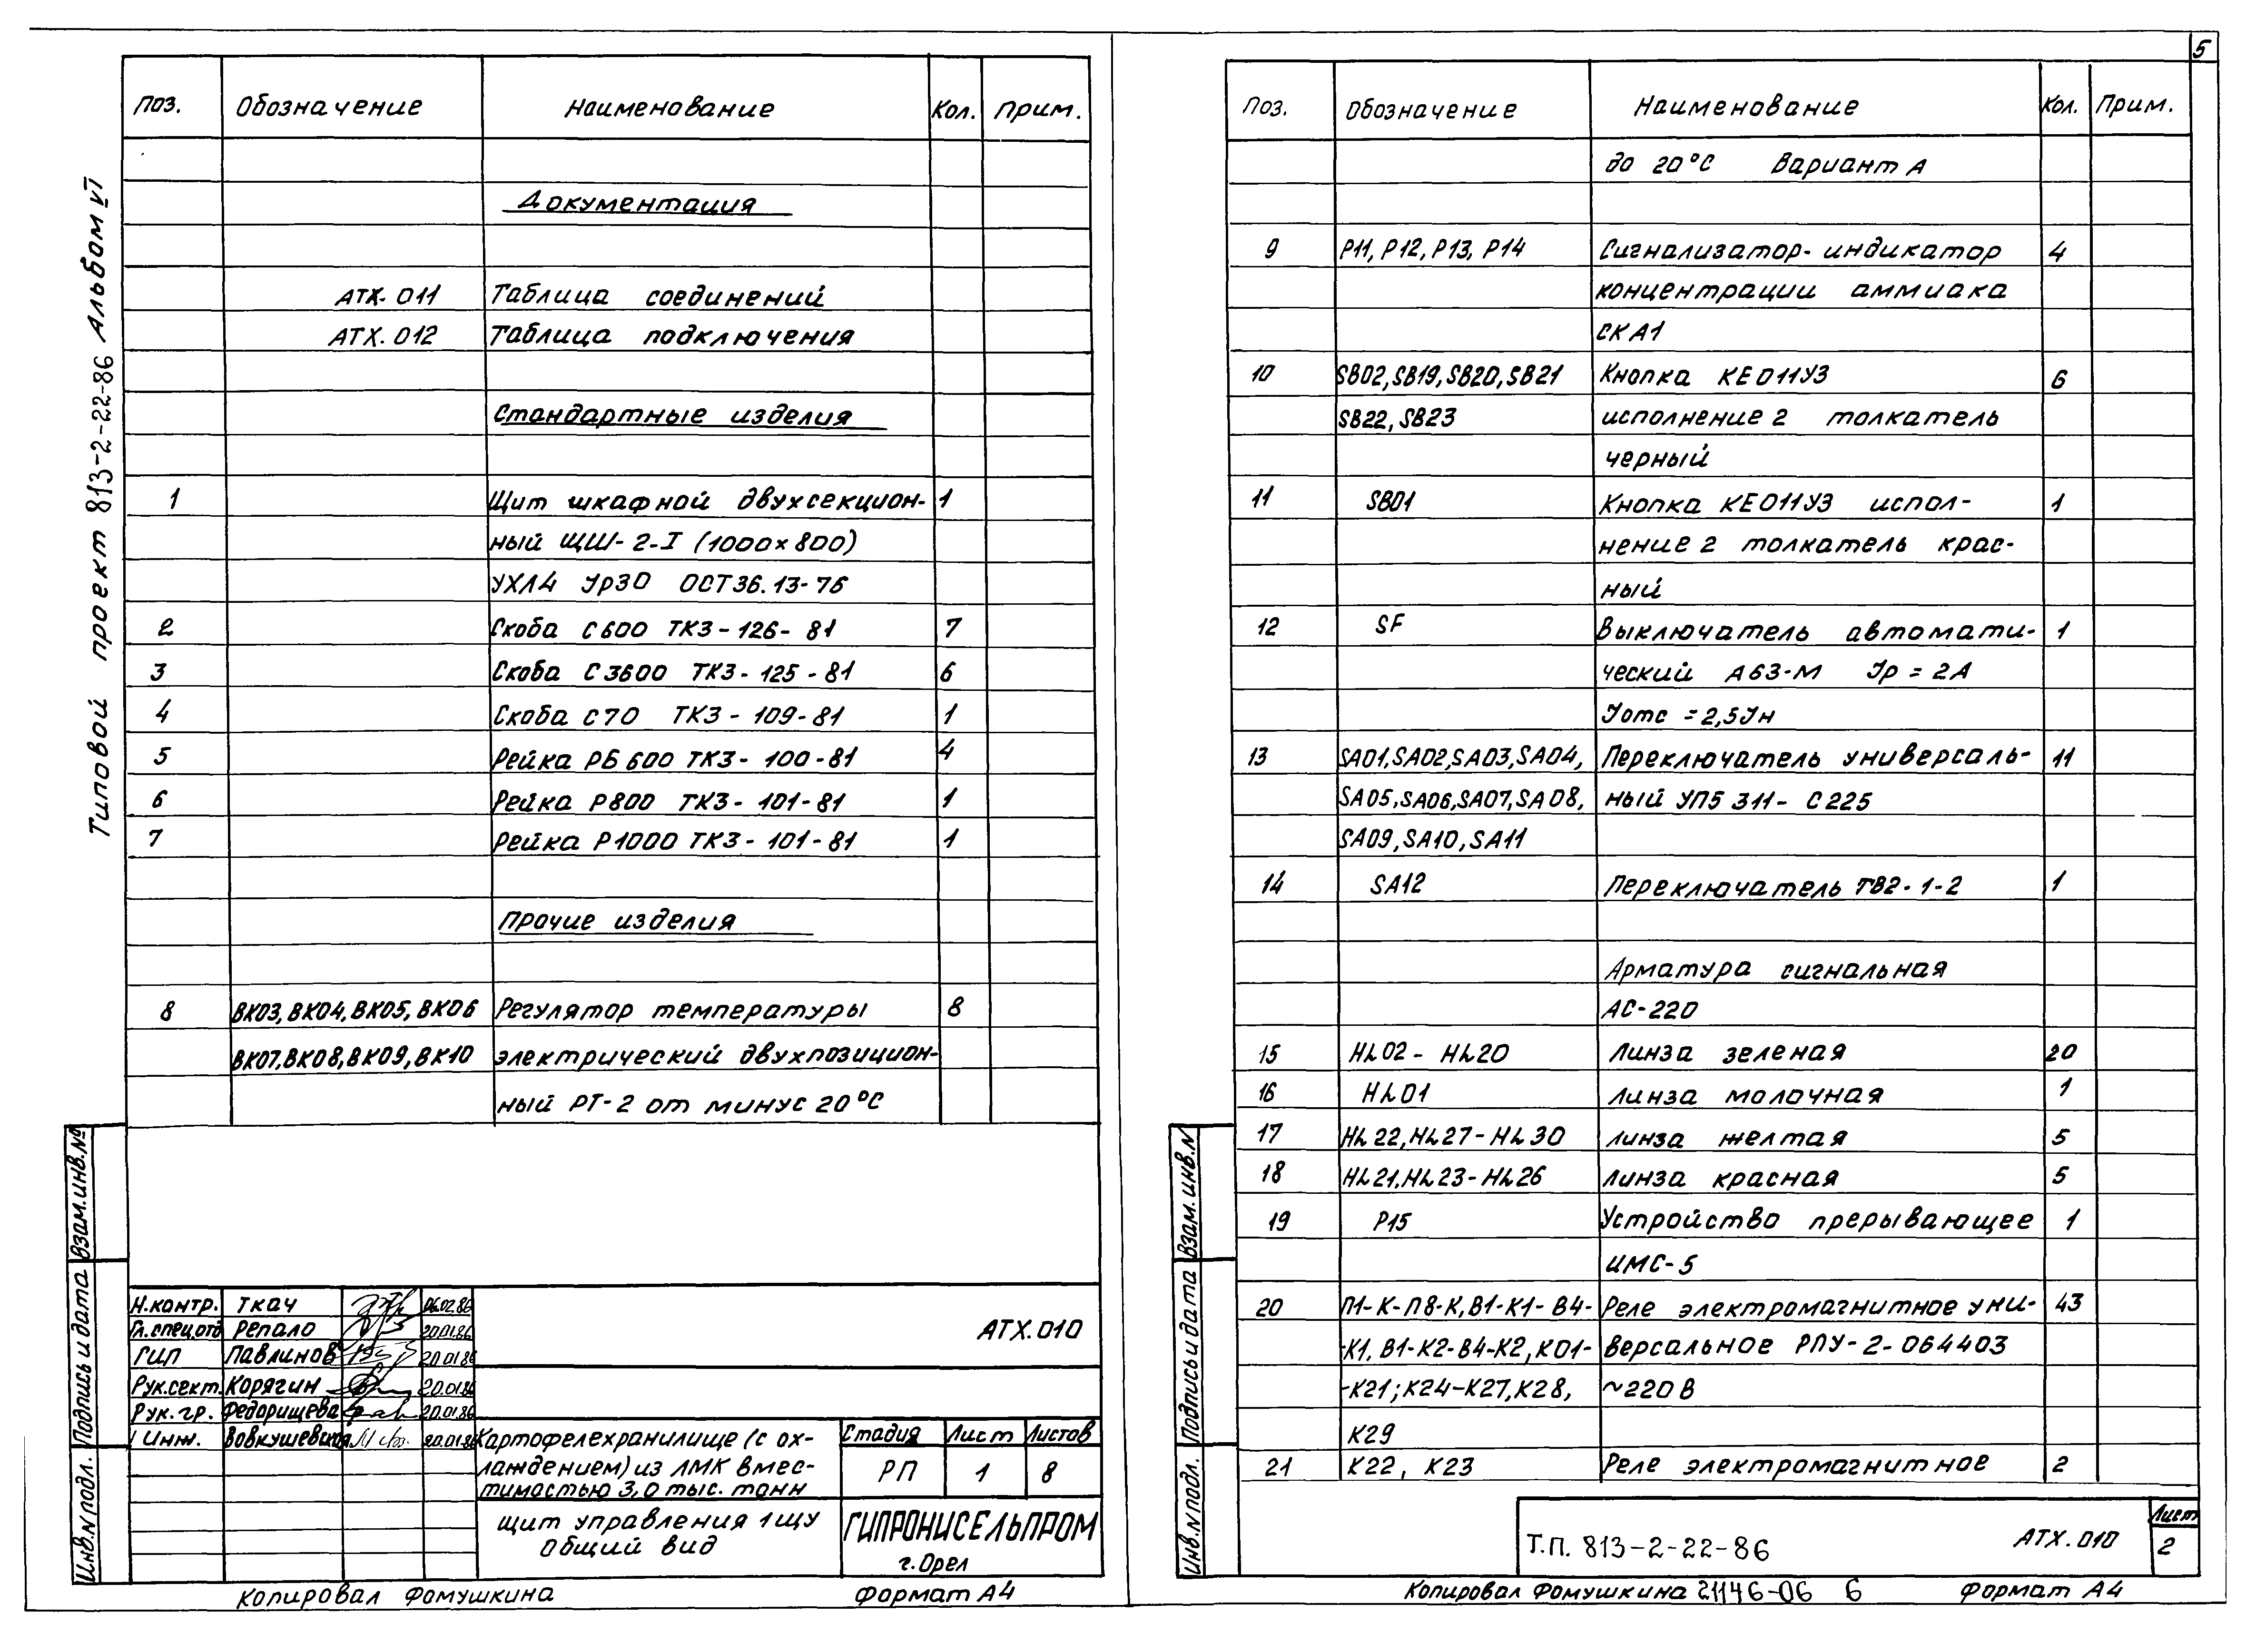 5
Типовой проект 813-2-22-86 Альбом VI
Поз. Обозначение Наименование Кол. Прим.
Документация
АТХ.011 Таблица соединений
АТХ.012 Таблица подключения
Стандартные изделия
1 Щит шкафной двухсекцион- 1
ный ЩШ-2-I (1000×800)
УХЛ4 Ур30 ОСТ36.13-76
2 Скоба С600 ТК3-126-81 7
3 Скоба С3600 ТК3-125-81 6
4 Скоба С70 ТК3-109-81 1
5 Рейка РБ600 ТК3-100-81 4
6 Рейка Р800 ТК3-101-81 1
7 Рейка Р1000 ТК3-101-81 1
Прочие изделия
8 ВК03, ВК04, ВК05, ВК06 Регулятор температуры 8
ВК07, ВК08, ВК09, ВК10 электрический двухпозицион-
ный РТ-2 от минус 20°С
Взам.инв.№
Подпись и дата
Инв.N подл.
Н.контр. Ткач 06.02.86
Гл.спец.отд Репало 20.01.86
ГИП Павлинов 20.01.86
Рук.сект. Корягин 20.01.86
Рук.гр. Федорищева 20.01.86
Инж. 20.01.86
АТХ.010
Картофелехранилище (с ох-
лаждением) из ЛМК вмес-
тимостью 3,0 тыс. тонн
Стадия Лист Листов
РП 1 8
Щит управления 1ЩУ
Общий вид
ГИПРОНИСЕЛЬПРОМ
г.Орел
Копировал Фомушкина Формат А4
Поз. Обозначение Наименование Кол. Прим.
до 20°С Вариант А
9 Р11, Р12, Р13, Р14 Сигнализатор-индикатор 4
концентрации аммиака
СКА1
10 SB02, SB19, SB20, SB21 Кнопка КЕ011У3 6
SB22, SB23 исполнение 2 толкатель
черный
11 SB01 Кнопка КЕ011У3 испол- 1
нение 2 толкатель крас-
ный
12 SF Выключатель автомати- 1
ческий А63-М Јр = 2А
Јотс = 2,5Јн
13 SA01, SA02, SA03, SA04, Переключатель универсаль- 11
SA05, SA06, SA07, SA08, ный УП5311-С225
SA09, SA10, SA11
14 SA12 Переключатель ТВ2-1-2 1
Арматура сигнальная
АС-220
15 HL02 - HL20 Линза зеленая 20
16 HL01 Линза молочная 1
17 HL22, HL27-HL30 Линза желтая 5
18 HL21, HL23-HL26 Линза красная 5
19 Р15 Устройство прерывающее 1
ИМС-5
20 П1-К-П8-К, В1-К1-В4- Реле электромагнитное уни- 43
-К1, В1-К2-В4-К2, К01- версальное РПУ-2-064403
-К21; К24-К27, К28, ~220В
К29
21 К22, К23 Реле электромагнитное 2
Взам.инв.N
Подпись и дата
Инв.N подл.
Т.П. 813-2-22-86 АТХ.010
Лист
2
Копировал Фомушкина 21146-06 6 Формат А4